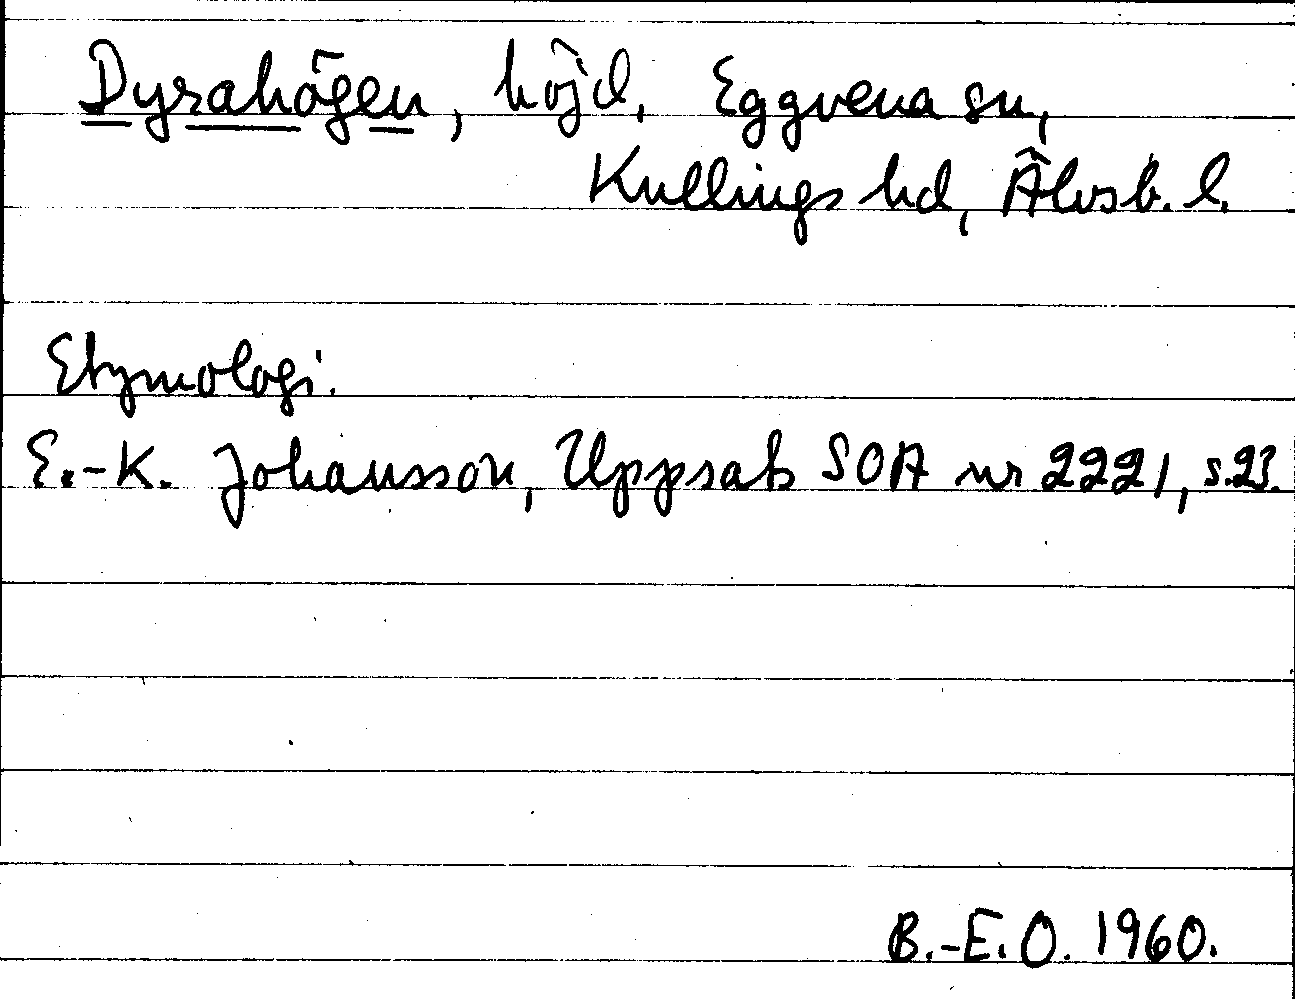 Dyrahögen, höjd, Eggvena sn,
Kullings hd, Älvsb. l.
Etymologi.
E.-K. Johansson, Uppsats SOA nr 2221, s.23.
B.-E.O. 1960.